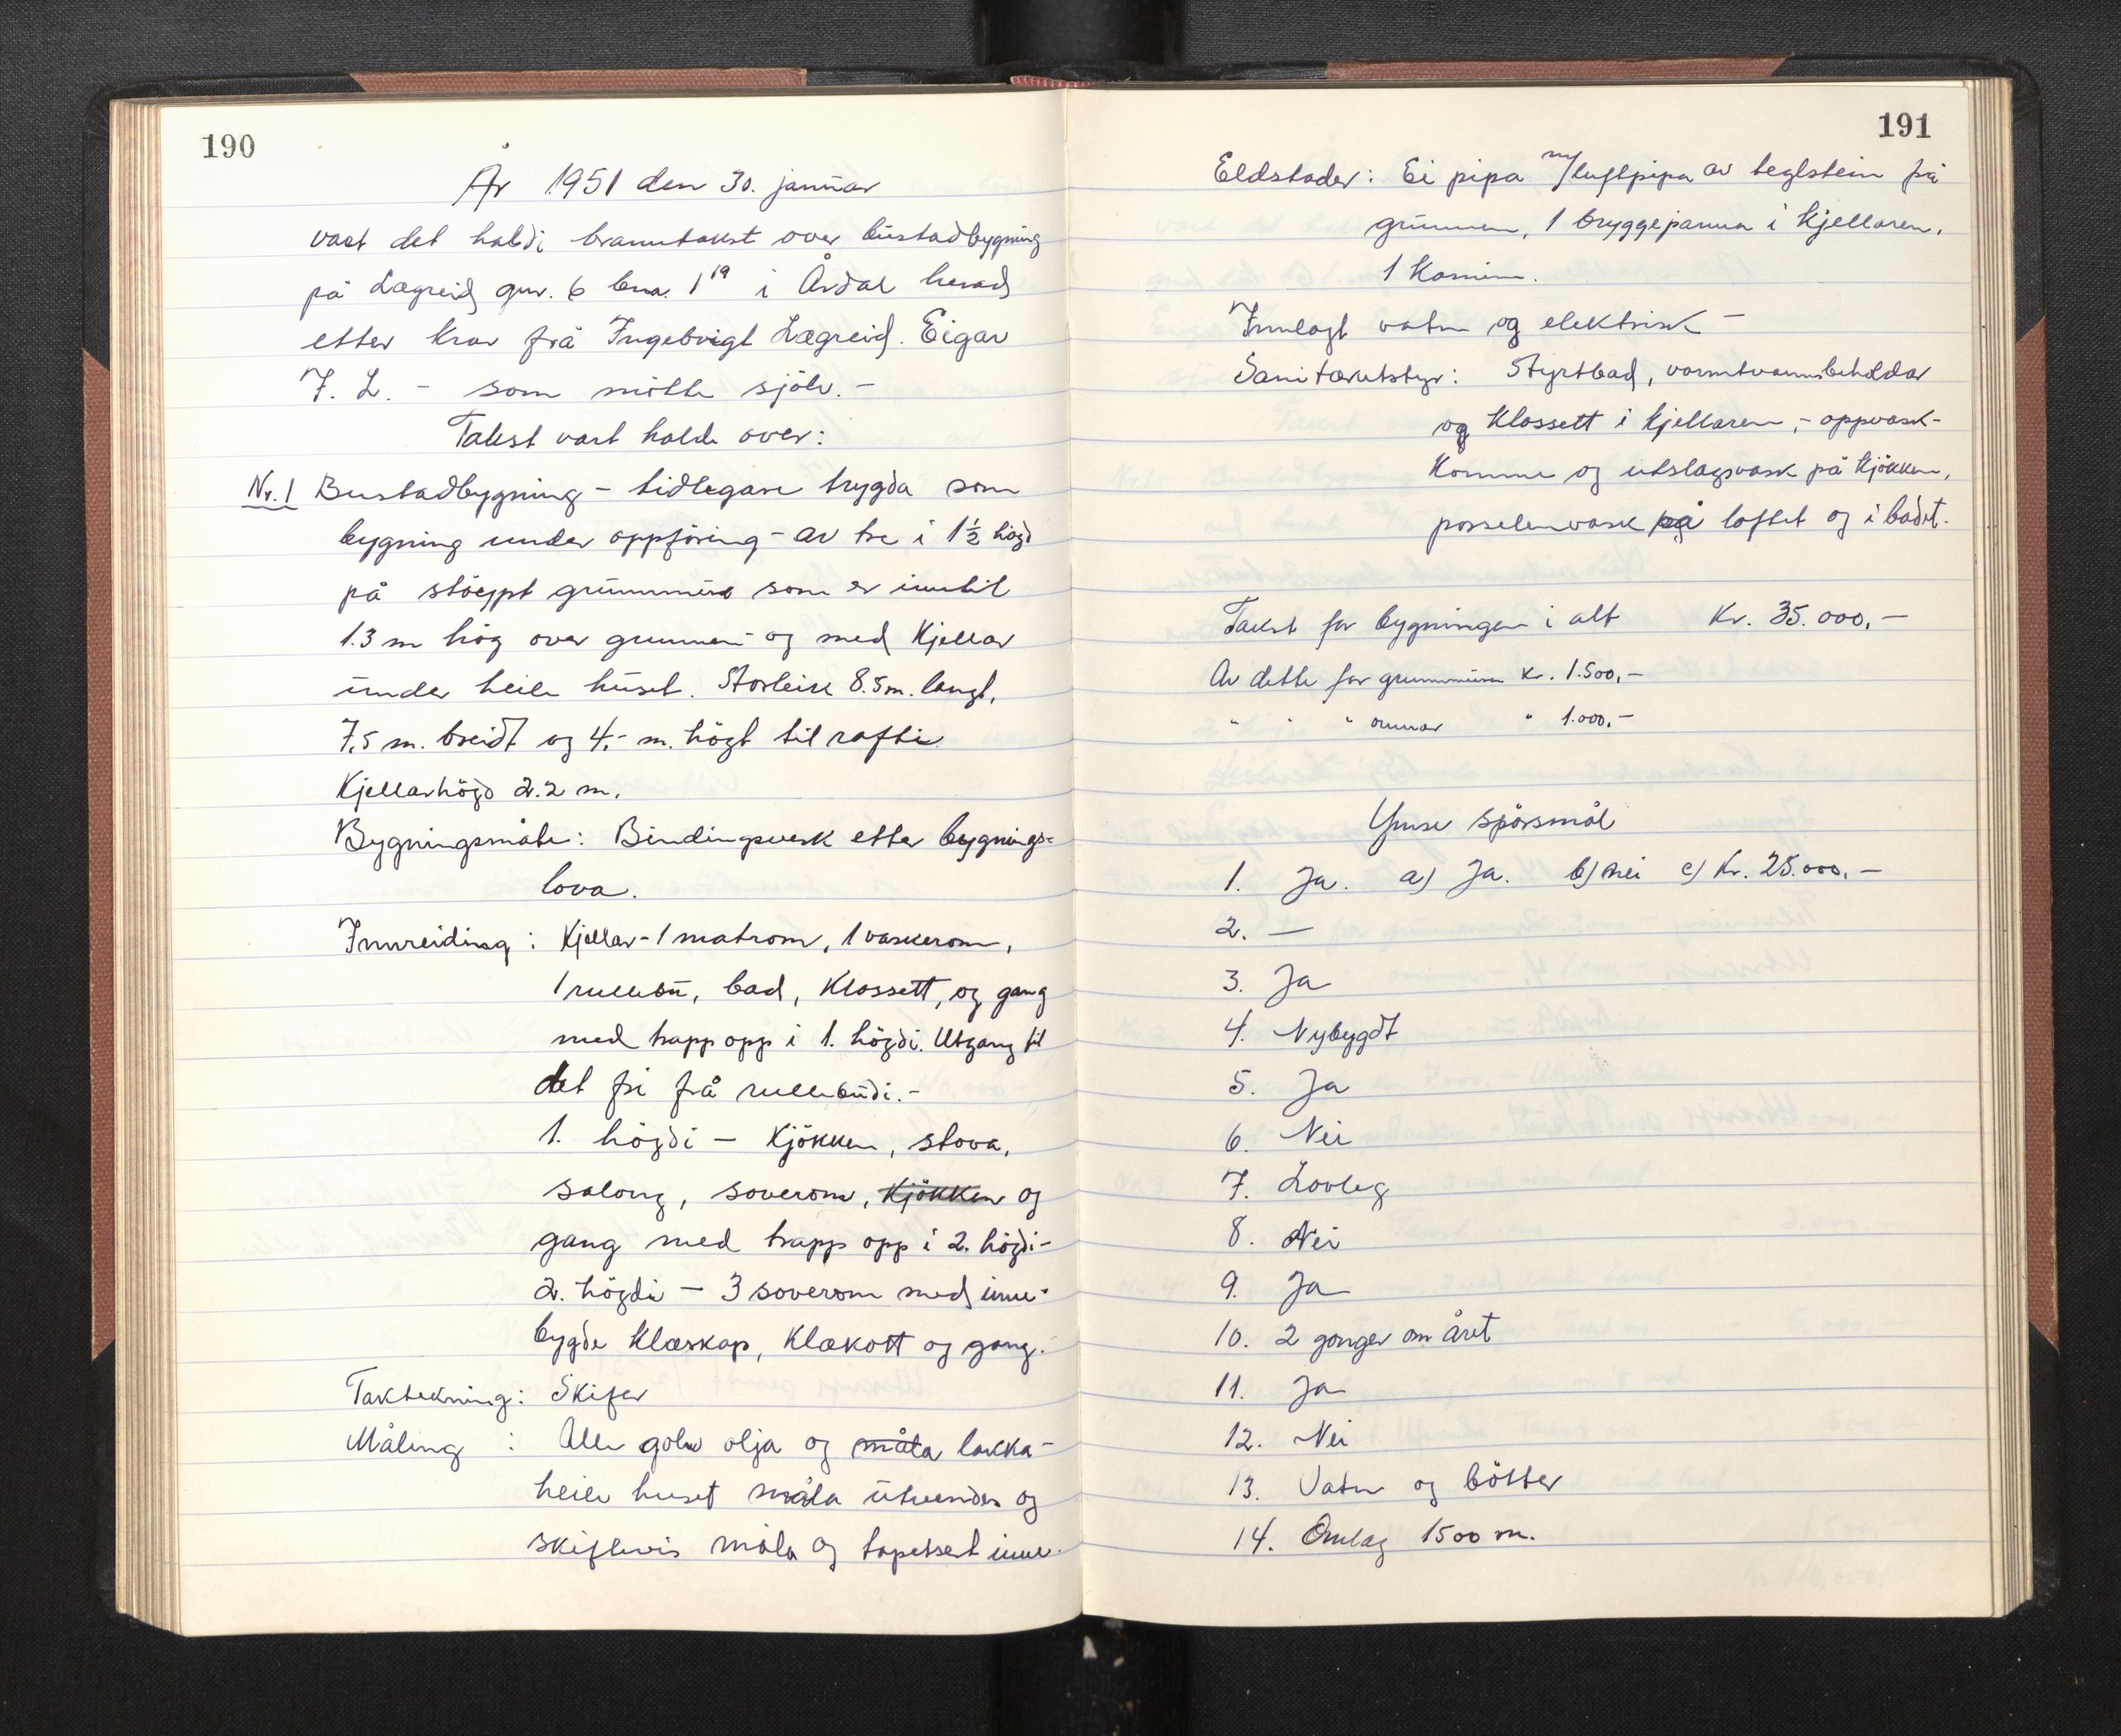 190
År 1951 den 30. januar
vart det haldi branntakst over bustadbygning
på Lægreid gnr. 6 bnr. 1 19 i Årdal herad
etter krav frå Ingebrigt Lægreid. Eigar
I. L. - som møtte sjölv. -
Takst vart halde over:
Nr. 1 Bustadbygning - tidlegare trygda som
bygning under oppföring - av tre i 1 1/2 högd
på stöypt grunnmur som er inntil
1.3 m hög over grunnen - og med Kjellar
under heile huset. Storleik 8.5 m. langt,
7,5 m. breidt og 4,- m. högt til rafti.
Kjellarhögd 2.2 m.
Bygningsmåte: Bindingsverk etter bygnings-
lova.
Innreiding: Kjellar - 1 matrom, 1 vaskerom,
1 rullebu, bad, Klossett, og gang
med trapp opp i 1. högdi. Utgang til
det fri frå rullebudi. -
1. högdi - Kjökken, stova,
salong, soverom, Kjökken og
gang med trapp opp i 2. högdi -
2. högdi - 3 soverom med inne-
bygde Klæskap, Klækott og gang.
Taktekning: Skifer
Måling : Alle golv olja og måla lakka -
heile huset måla utvendes og
skiftevis måla og tapetsert inne.
191
Eldstader: Ei pipa m/luftpipa av teglstein frå
grunnen, 1 bryggepanna i Kjellaren,
1 Kamin.
Innlagt vatn og elektrisk -
Sanitærutstyr: Styrtbad, varmtvannsbehaldar
og Klossett i Kjellaren, - oppvask-
Komme og utslagsvask på Kjökken,
porselenvask på loftet og i badet.
Takst for bygningen i alt Kr. 35.000,-
Av dette for grunnmuren Kr. 1.500,-
" " " omnar " 1.000,-
Ymse spörsmål
1. Ja. a) Ja. b) nei c) Kr. 25.000,-
2. —
3. Ja
4. Nybygdt
5. Ja
6. Nei
7. Lovleg
8. Nei
9. Ja
10. 2 gonger om året
11. Ja
12. Nei
13. Vatn og bötter
14. Omlag 1500 m.